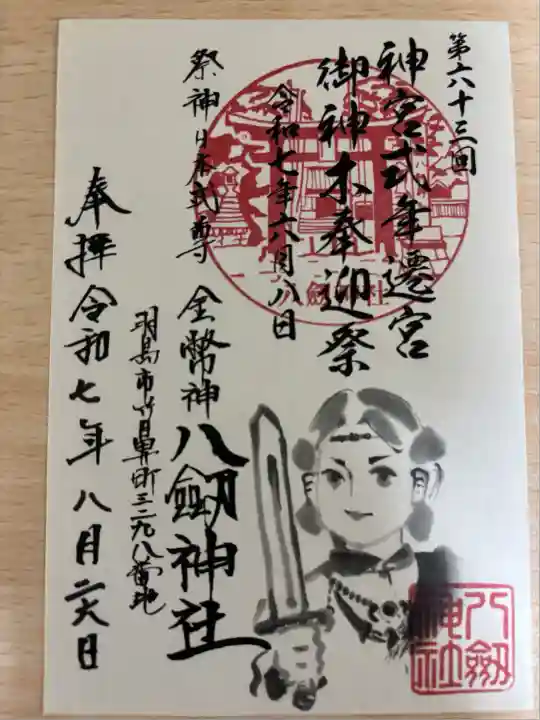 第六十三回
神宮式年遷宮
御神木奉迎祭
令和七年六月八日
祭神日本武尊
金幣神
八劔神社
羽島市竹鼻町三二九八番地
奉拝令和七年八月二六日
八劔神社
八劔
神社